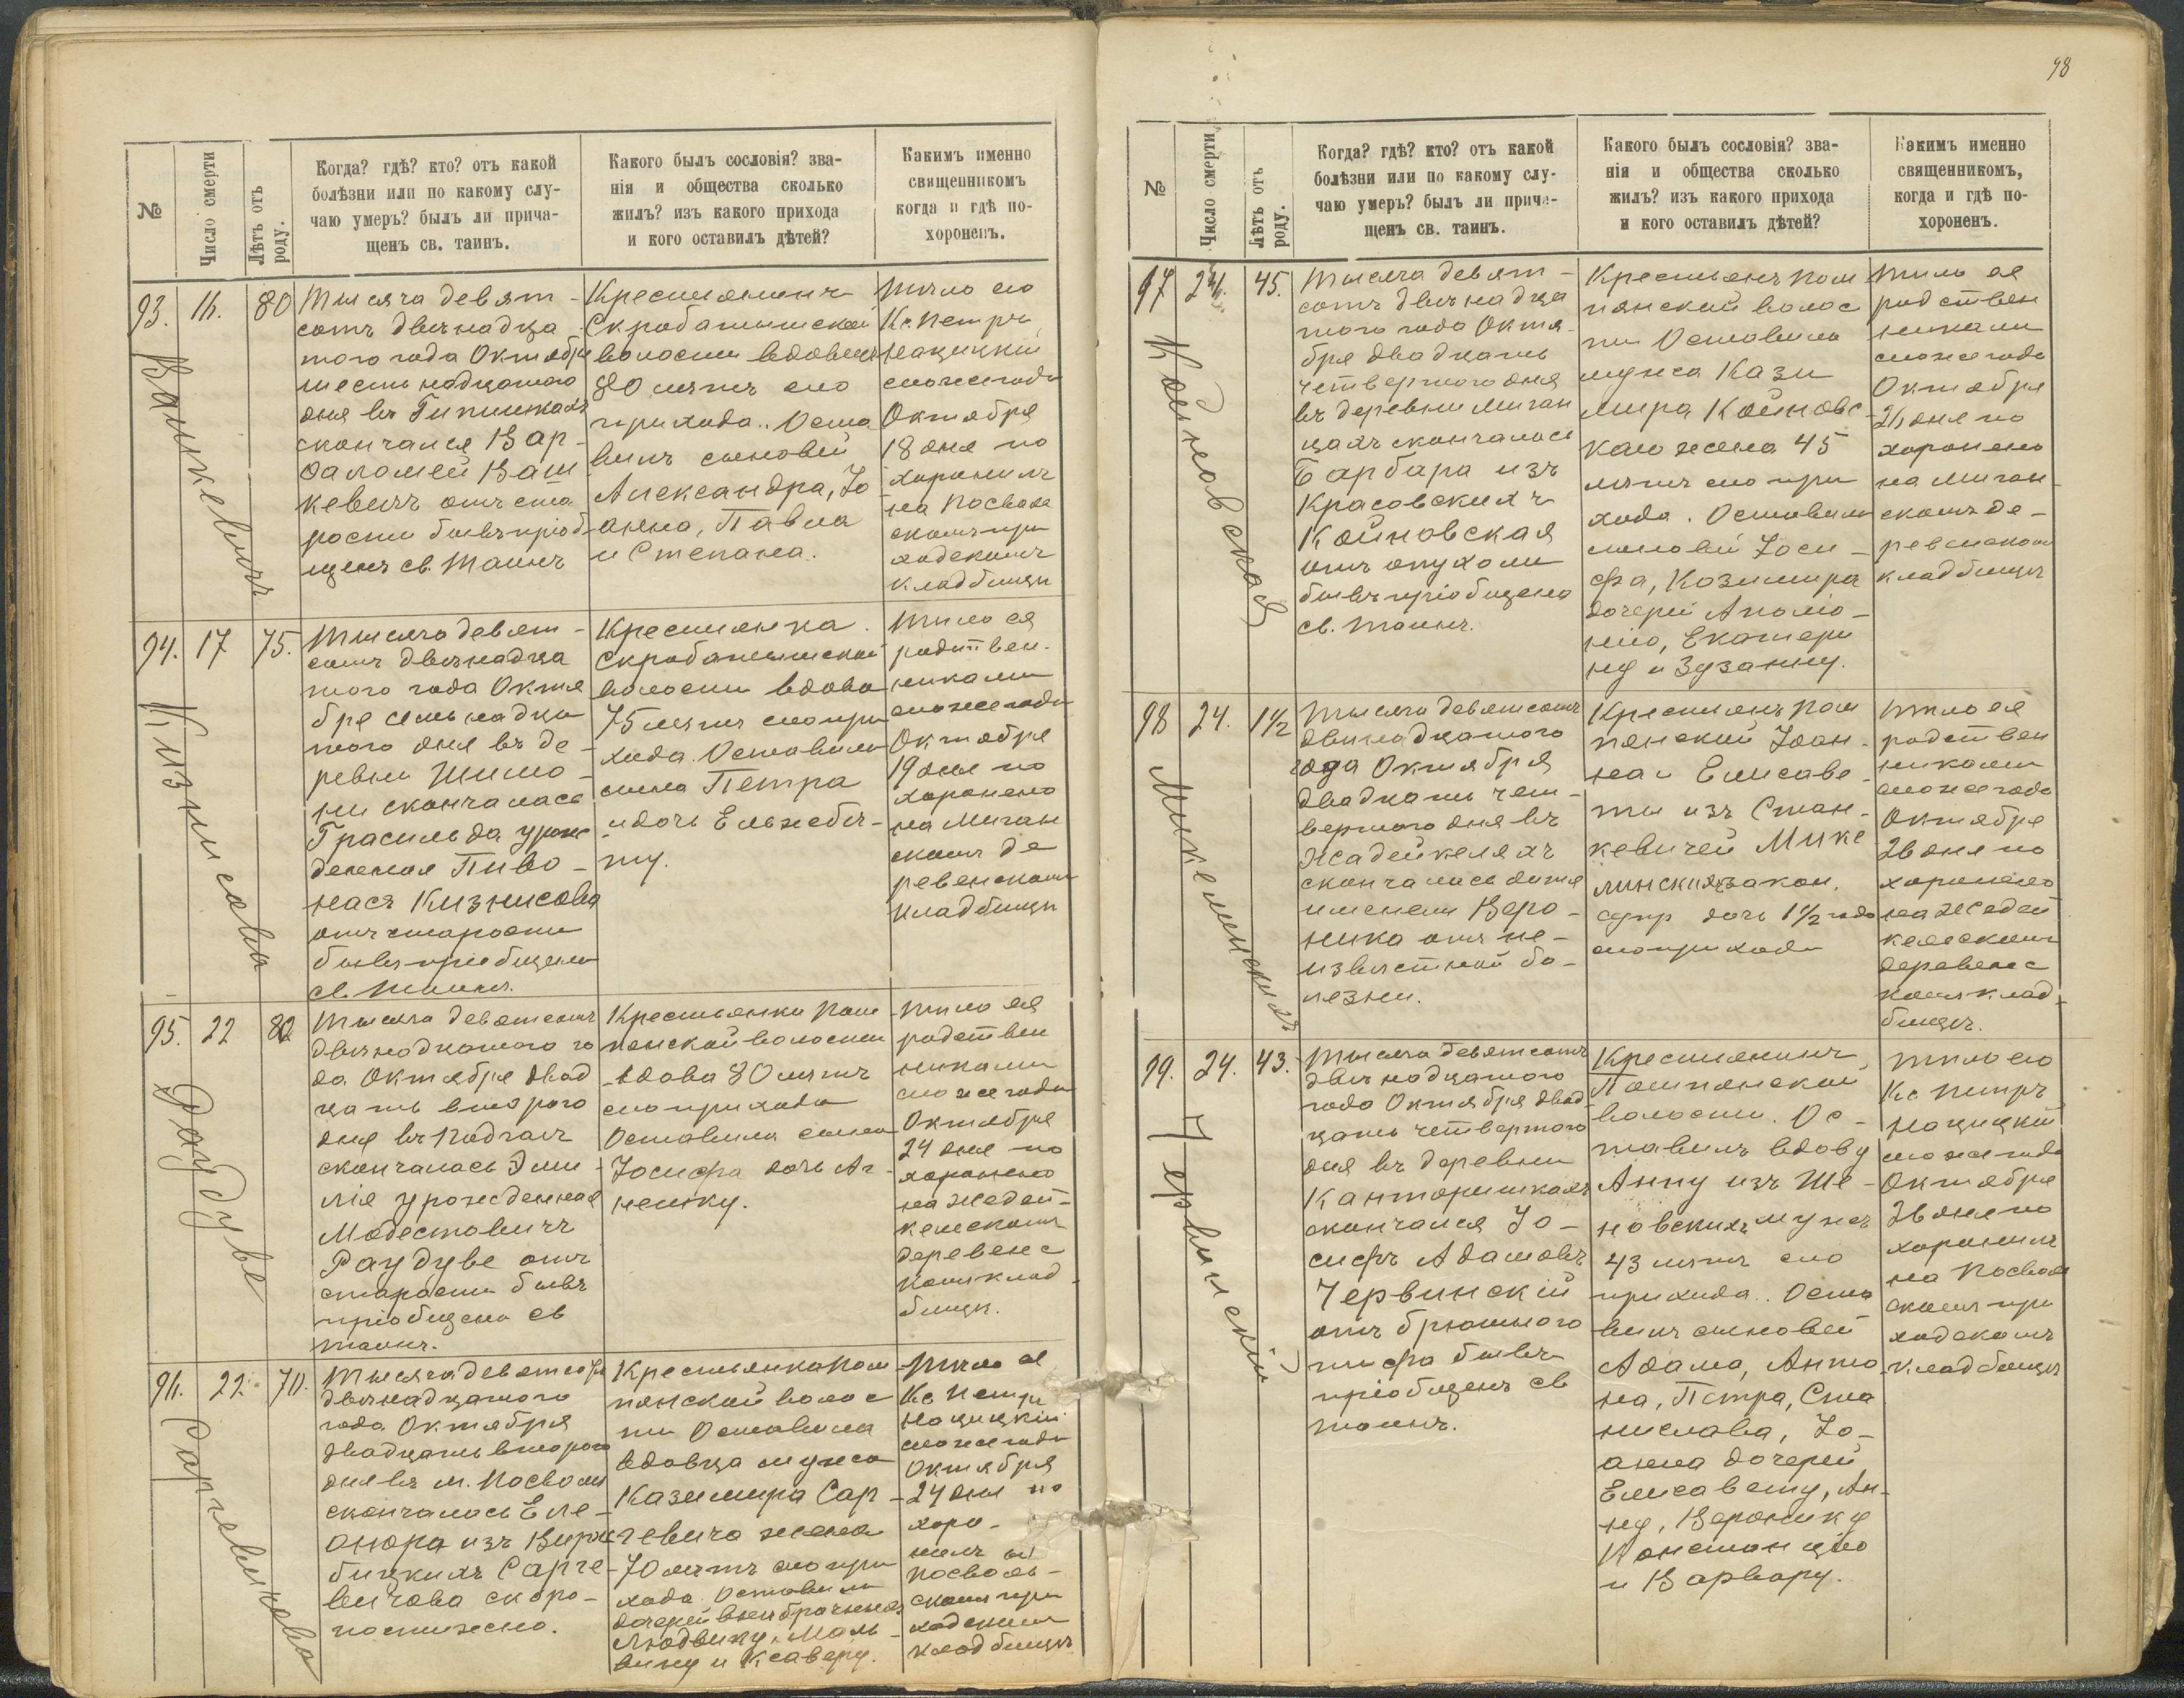 98
№
Число смерти
Лѣтъ отъ роду.
Когда? гдѣ? кто? отъ какой
болѣзни или по какому слу-
чаю умеръ? былъ ли прича-
щенъ св. таинъ.
Какого былъ сословія? зва-
нія и общества сколько
жилъ? изъ какого прихода
и кого оставилъ дѣтей?
Какимъ именно
священникомъ
когда и гдѣ по-
хороненъ.
93.
16.
80
Вашкевичъ
Тысяча девят-
сотъ двѣнадца
того года Октября
шестьнадцатаго
дня въ Гипишках
скончался Вар-
ѳаломей Ваш
кевичъ отъ ста
рости бывъ пріоб
щенъ св. Таинъ
Крестьянинъ
Скробатышской
волости вдовецъ
80 лѣтъ сего
прихода. Оста
вилъ сыновей
Александра, Іо
анна, Павла
и Степана.
Тѣло его
Кс. Петръ
Нацицкій
сего же года
Октября
18 дня по
хоронилъ
на Посволь
скомъ при
ходскомъ
кладбищѣ
94.
17
75.
Кизнисова
Тысяча девят-
сотъ двѣнадца
того года Октя
бря семьнадца
того дня въ де-
ревни Шимо-
ни скончалась
Грасильда урож
денная Пиво-
насъ Кизнисова
отъ старости
бывъ пріобщена
св. Таинъ.
Крестьянка
Скробатышской
волости вдова
75 лѣтъ сего при
хода. Оставила
сына Петра
и дочь Ельжбѣ-
ту.
Тѣло ея
родствен.
никами
сего же года
Октября
19 дня по
хоронено
на Миган
скомъ де
ревенскомъ
кладбищѣ
95.
22
80
Раудуве
Тысяча девятсотъ
двѣнадцатаго го
да Октября двад
цать второго
дня въ
скончалась Эми-
лія урожденная
Модестовичъ
Раудуве отъ
старости бывъ
пріобщена св
таинъ.
Крестьянки Пом
пянской волости
вдова 80 лѣтъ
сего прихода
Оставила сына
Іосифа дочь Аг-
нешку.
Тѣло ея
родствен
никами
сего же года
Октября
24 дня по
хоронено
на Жадей-
кельскомъ
деревенс
комъ клад-
бищѣ.
96.
22.
70.
Саргевичова
Тысяча девятсотъ
двѣнадцатаго
года Октября
двадцать второго
дня въ м. Посволи
скончалась Еле-
онора изъ
бицкихъ Сарге-
вичова скоро-
постижно.
Крестьянка Пом
пянской волос
ти Оставила
вдовца мужа
Казимира Сар-
гевича жена
70 лѣтъ сего при
хода. Оставила
дочерей внѣбрачныхъ
Людвику, Маль-
вину и Ксаверу.
Тѣло ея
Кс Петръ
Нацицкій
сего же года
Октября
24 дня по
хоро-
нилъ на
Посволь-
скомъ при
ходскомъ
кладбищѣ
№
Число смерти
Лѣтъ отъ роду.
Когда? гдѣ? кто? отъ какой
болѣзни или по какому слу-
чаю умеръ? былъ ли приче-
щенъ св. таинъ.
Какого былъ сословія? зва-
нія и общества сколько
жилъ? изъ какого прихода
и кого оставилъ дѣтей?
Какимъ именно
священникомъ,
когда и гдѣ по-
хороненъ.
97
24.
45.
Койновская
Тысяча девят-
сотъ двѣнадца
того года Октя-
бря двадцать
четвертого дня
въ деревни Миган
цахъ скончалась
Барбара изъ
Красовскихъ
Койновская
отъ опухоли
бывъ пріобщена
св. таинъ.
Крестьянъ Пом
пянской волос
ти Оставила
мужа Кази
мира Койновс-
каго жена 45
лѣтъ сего при
хода. Оставила
сыновей Іоси-
фа, Козимира
дочерей Аполо-
нію, Екатери
ну и Зузанну.
Тѣло ея
родствен
никами
сего же года
Октября
26 дня по
хоронено
на Миган-
скомъ де-
ревенскомъ
кладбищѣ
98
24.
1½
Микелинскихъ
Тысяча девятсотъ
двѣнадцатаго
года Октября
двадцать чет-
вертого дня въ
Жадейкеляхъ
скончалась дитя
именем Веро-
ника отъ не-
извѣстной бо-
лезни.
Крестьянъ Пом
пянской Іоан-
на и Елисаве-
ты изъ Стан-
кевичей Мике
линскихъ закон.
супр дочь 1½ года
сего прихода
Тѣло ея
родствен
никами
сего же года
Октября
26 дня по
хоронено
на Жадей
кельскомъ
деревенс
комъ клад-
бищѣ.
99.
24.
43.
Червинскій
Тысяча девятсотъ
двѣнадцатаго
года Октября двад-
цать четвертого
дня въ деревни
Канторишкахъ
скончался Іо-
сифъ Адамовъ
Червинскій
отъ брюшного
тифа бывъ
пріобщенъ св
таинъ.
Крестьянинъ
Помпянской
волости. Ос-
тавилъ вдову
Анну изъ Ше-
новскихъ мужъ
43 лѣтъ сего
прихода. Оста
вилъ сыновей
Адама, Анто
на, Петра, Ста
нислава, Іо-
анна дочерей
Елисавету, Ан-
ну, Веронику
Констанцію
и Варвару.
Тѣло его
Кс Петръ
Нацицкій
сего же года
Октября
26 дня по
хоронилъ
на Посволь
скомъ при
ходскомъ
кладбищѣ